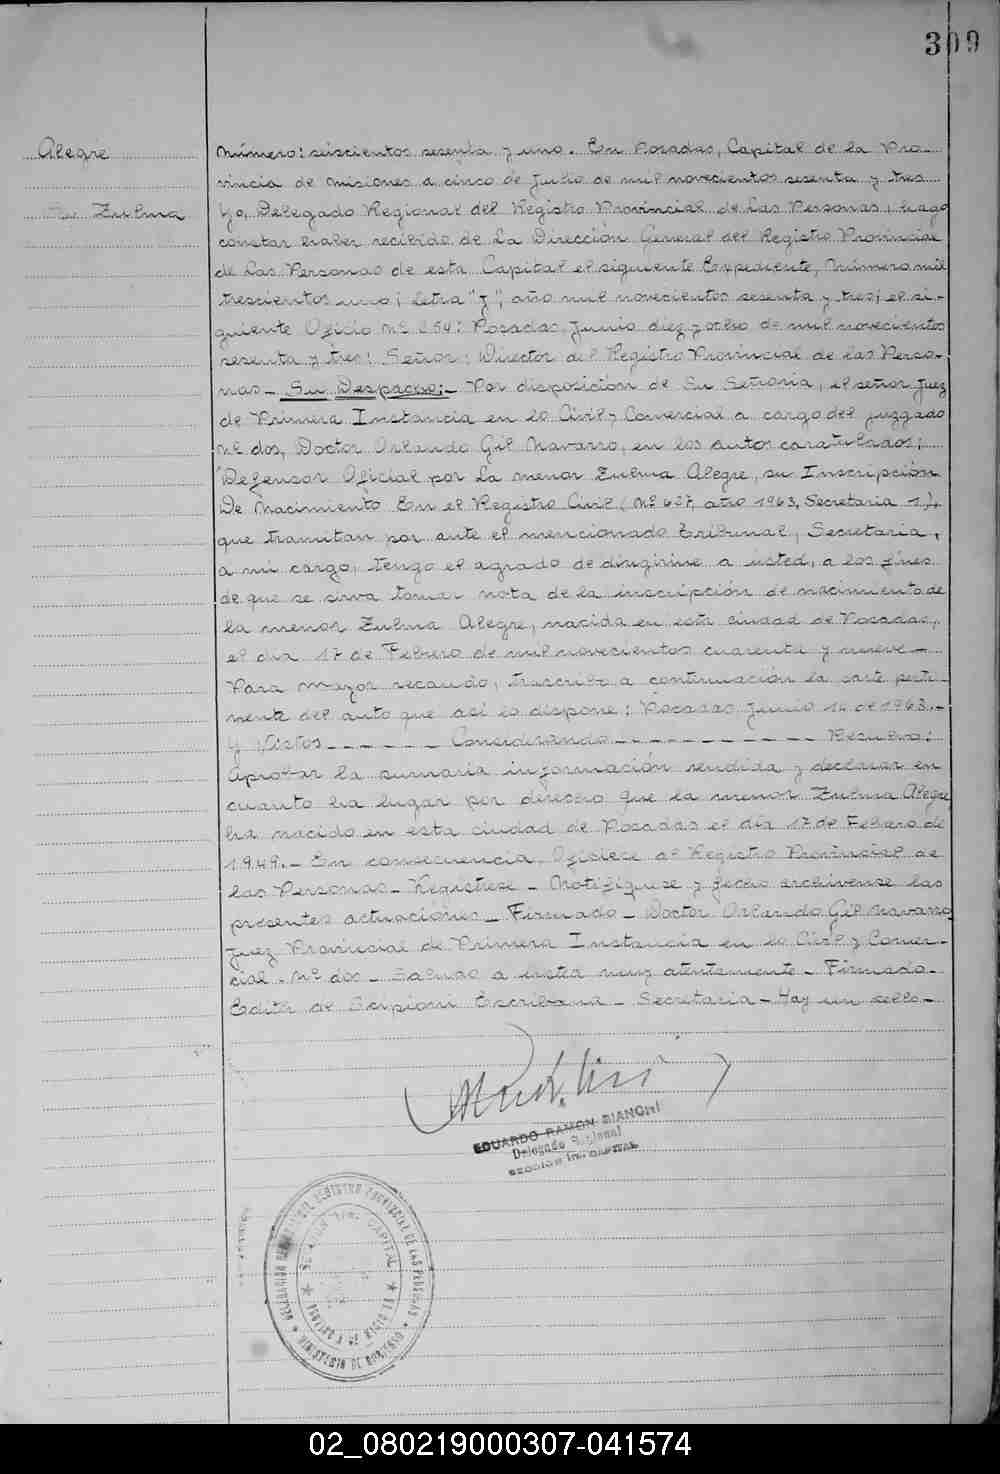 309
Alegre
Zulma
Número: seiscientos sesenta y uno. En Posadas, Capital de la Pro-
vincia de Misiones a cinco de Julio de mil novecientos sesenta y tres
Yo, Delegado Regional del Registro Provincial de Las Personas, hago
constar haber recibido de La Dirección General del Registro Provincial
de Las Personas de esta Capital el siguiente Expediente, Número mil
trescientos uno; letra "J", año mil novecientos sesenta y tres; el si-
guiente Oficio Nº 254: Posadas, Junio diez y ocho de mil novecientos
sesenta y tres: Señor: Director del Registro Provincial de las Perso-
nas - Su Despacho: - Por disposición de Su Señoria, el señor Juez
de Primera Instancia en lo Civil y Comercial a cargo del juzgado
Nº dos, Doctor Orlando Gil Navarro, en los autos caratulados:
"Defensor Oficial por La menor Zulma Alegre, su Inscripción
De Nacimiento En el Registro Civil (Nº 637, año 1963, Secretaria 1),
que tramitan por ante el mencionado Tribunal, Secretaria,
a mi cargo, tengo el agrado de dirigirme a usted, a los fines
de que se sirva tomar nota de la inscripción de nacimiento de
la menor Zulma Alegre, nacida en esta ciudad de Posadas,
el día 17 de Febrero de mil novecientos cuarenta y nueve -
Para mayor recaudo, trascribo a continuación la parte perti-
nente del auto que así lo dispone: Posadas Junio 14 de 1963.-
Y Vistos - - - - - - Considerando - - - - - - - - - - Resuelvo:
Aprobar la sumaria información rendida y declarar en
cuanto ha lugar por derecho que la menor Zulma Alegre
ha nacido en esta ciudad de Posadas el día 17 de Febrero de
1949.- En consecuencia, Ofíciese al Registro Provincial de
las Personas - Regístrese - Notifíquese y fecho archívense las
presentes actuaciones - Firmado - Doctor Orlando Gil Navarro
Juez Provincial de Primera Instancia en lo Civil y Comer-
cial - Nº dos - Saludo a usted muy atentamente - Firmado -
Edith de Scipioni Escribana - Secretaria - Hay un sello -
EDUARDO RAMON
Delegado Regional
SECCION 1ra. CAPITAL
REGISTRO PROVINCIAL DE LAS PERSONAS
SECCION 1ra. CAPITAL
MINISTERIO DE GOBIERNO
02_080219000307-041574